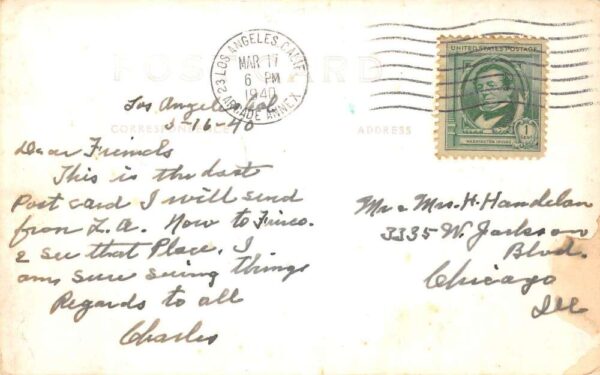 POST CARD
LOS ANGELES, CALIF.
23
MAR 17
6 PM
1940
ARCADE ANNEX
UNITED STATES POSTAGE
1
CENT
WASHINGTON IRVING
CORRESPONDENCE
ADDRESS
Los Angeles Cal
3-16-40
Dear Friends
This is the last
Post card I will send
from L.A. Now to Frisco.
& see that Place. I
am sure seeing things
Regards to all
Charles
Mr & Mrs. H. Handelan
3335 W. Jackson
Blvd.
Chicago
Ill